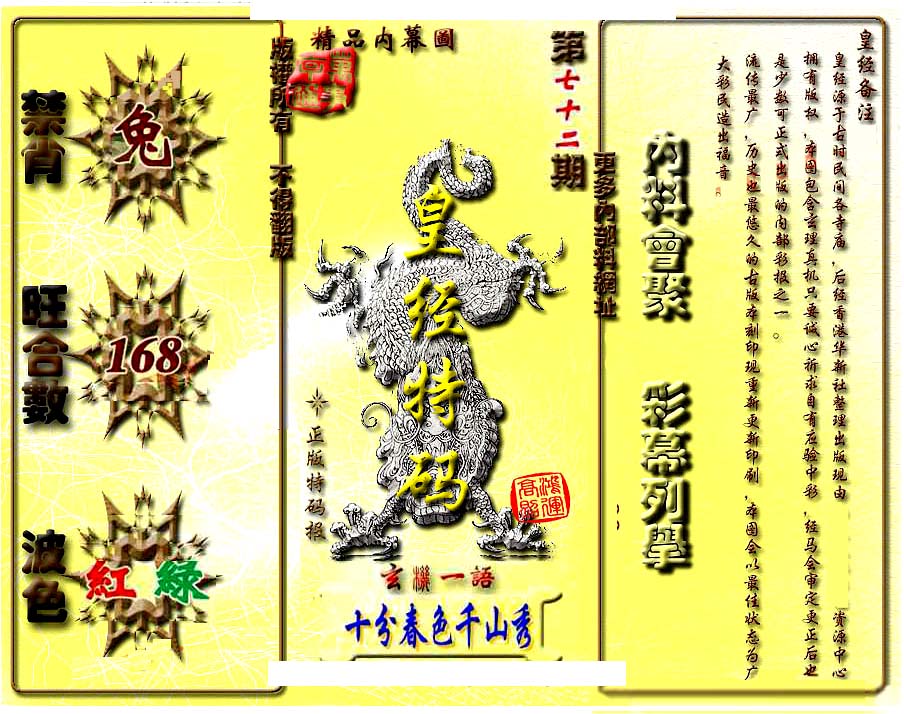 禁肖
兔
旺合數
168
波色
紅 綠
版權所有 不得翻版
精品内幕圖
第七十二期
更多内部料網址
皇经特码
正版特码报
鸿運高照
玄機一語
十分春色千山秀
内料會聚 彩幕列舉
皇经备注
皇经源于古时民间各寺庙，后经香港华新社整理出版现由 资源中心
拥有版权，本图包含玄理真机只要诚心祈求自有应验中彩，经马会审定更正后也
是少数可正式出版的内部彩报之一。
流传最广，历史也最悠久的古版本刻印现重新更新印刷，本图会以最佳状态为广
大彩民造出福音